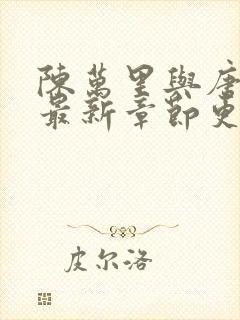 陳萬里與唐
最新章節更
皮尔洛